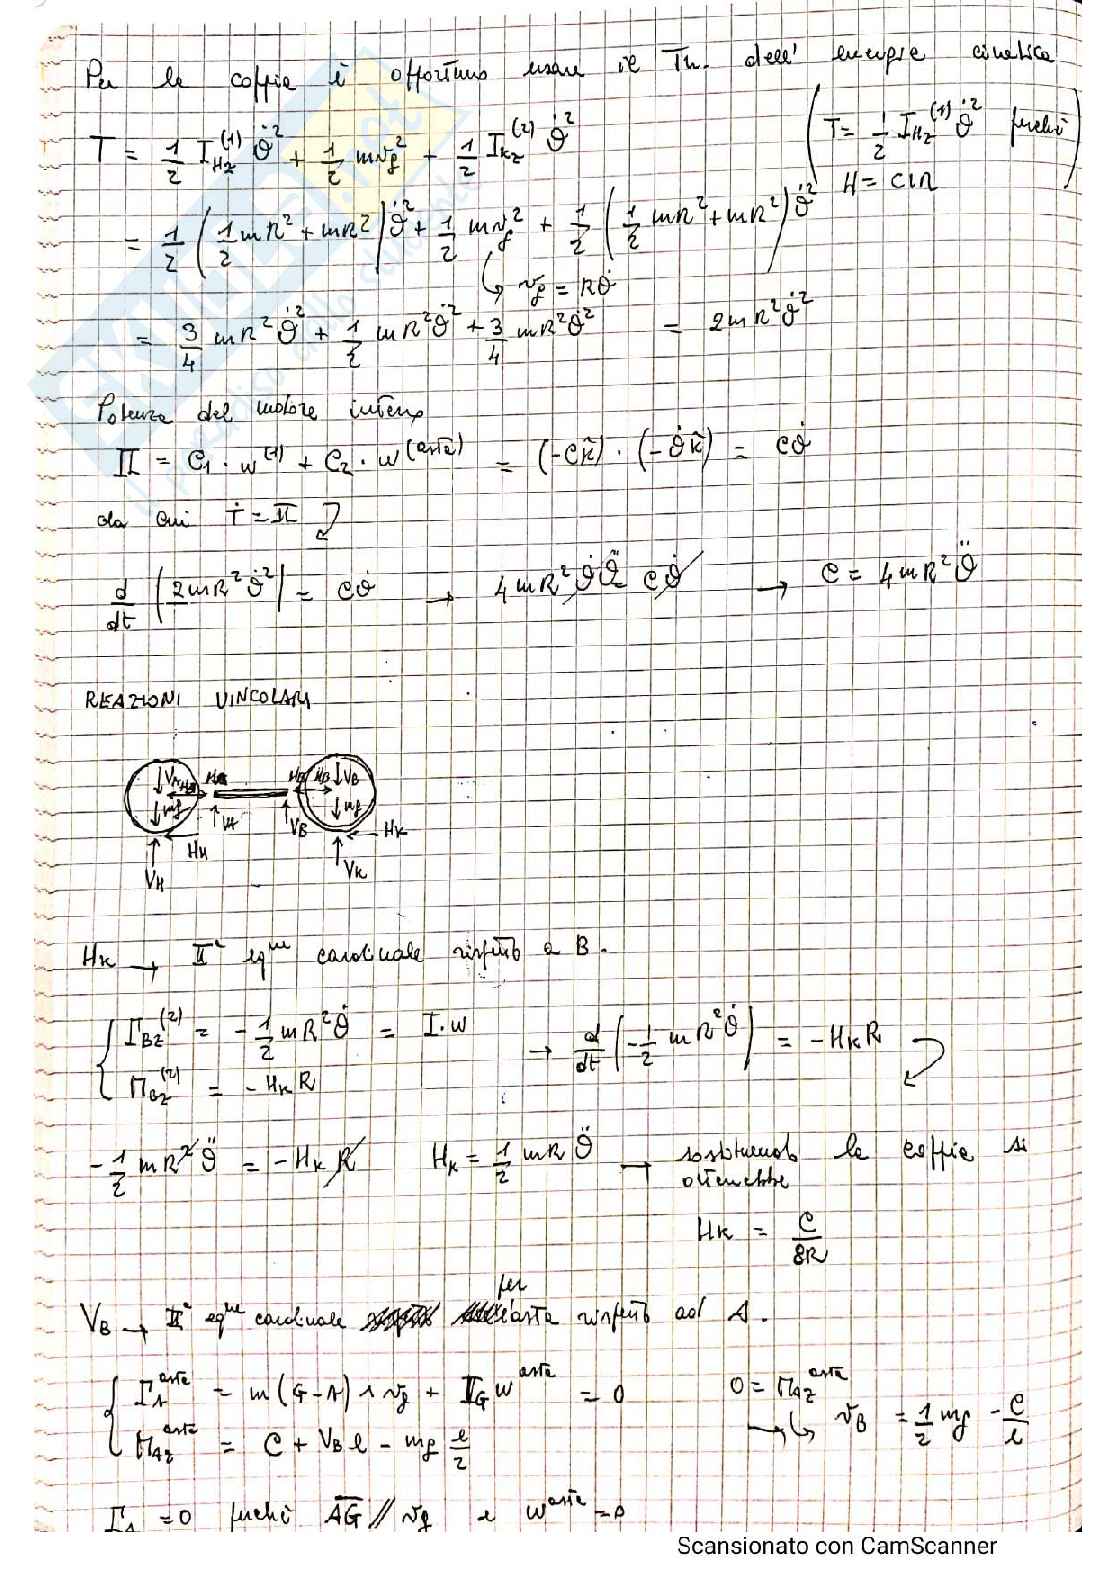 Per la coppia è opportuno usare il Th. dell' energia cinetica
T = 1/2 I_Hz^(1) θ̇² + 1/2 m v_g² + 1/2 I_Kz^(2) θ̇²
(T = 1/2 I_Hz^(1) θ̇² perché
H = CIR)
= 1/2 (1/2 mR² + mR²) θ̇² + 1/2 m v_g² + 1/2 (1/2 mR² + mR²) θ̇²
↳ v_g = Rθ̇
= 3/4 mR² θ̇² + 1/2 mR² θ̇² + 3/4 mR² θ̇² = 2mR² θ̇²
Potenza del motore interno
Π = C₁ · w^(1) + C₂ · w^(asta) = (-C k̂) · (-θ̇ k̂) = Cθ̇
da qui Ṫ = Π
d/dt (2mR² θ̇²) = Cθ̇ → 4mR² θ̇ θ̈ = Cθ̇ → C = 4mR² θ̈
REAZIONI VINCOLARI
V_A H_A H_A H_B H_B V_B
mg V_A V_B mg H_K
H_H
V_H V_K
H_K → IIª eq^ne cardinale rispetto a B.
Γ_Bz^(2) = - 1/2 mR² θ̇ = I · w → d/dt (- 1/2 mR² θ̇) = - H_K R
M_Bz^(2) = - H_K R
- 1/2 mR² θ̈ = - H_K R H_K = 1/2 mR θ̈ → sostituendo la coppia si
otterrebbe
H_K = C/8R
per
V_B → IIª eq^ne cardinale l'asta rispetto ad A.
Γ_A^asta = m(G-A) ∧ v_g + I_G w^asta = 0 0 = M_Az^asta
M_Az^asta = C + V_B l - mg l/2 → ↳ V_B = 1/2 mg - C/l
Γ_A = 0 perché AG // v_g e w^asta = 0
Scansionato con CamScanner